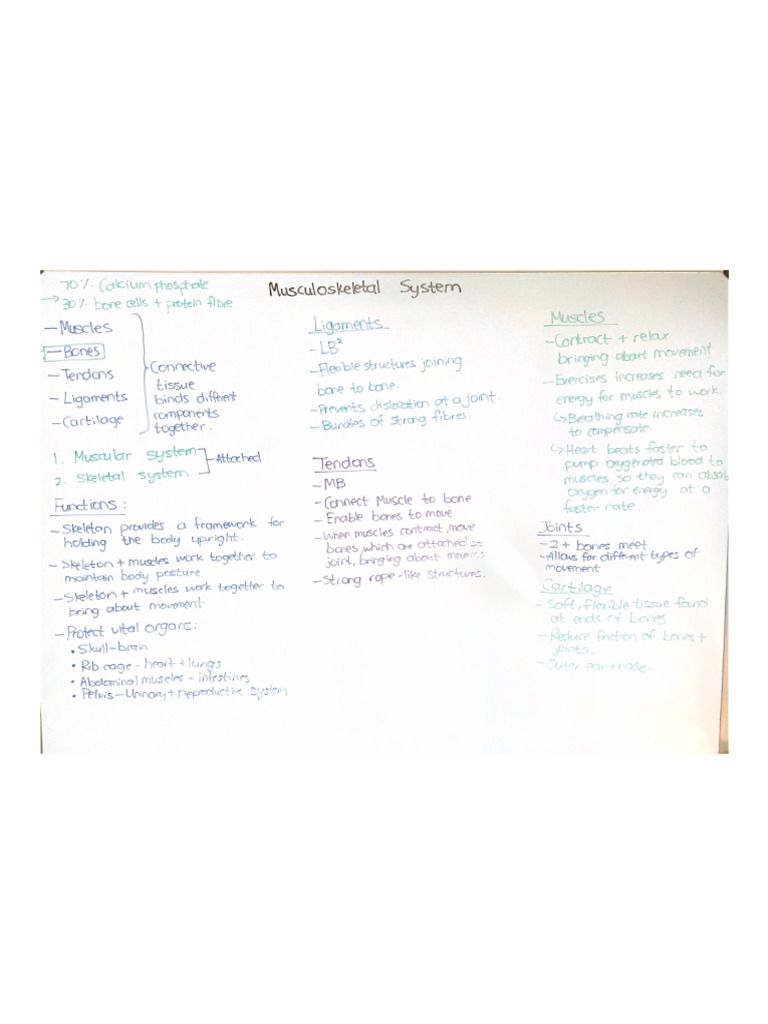 Musculoskeletal System
70% Calcium phosphate
→ 30% bone cells + protein fibre
— Muscles
— Bones
— Tendons
— Ligaments
— Cartilage
Connective
tissue
binds different
components
together.
1. Muscular system
2. Skeletal system
Attached
Functions:
— Skeleton provides a framework for
holding the body upright.
— Skeleton + muscles work together to
maintain body posture
— Skeleton + muscles work together to
bring about movement
— Protect vital organs:
• Skull – brain
• Rib cage – heart + lungs
• Abdominal muscles – intestines
• Pelvis – Urinary + reproductive system
Ligaments
– LB²
– Flexible structures joining
bone to bone.
– Prevents dislocation at a joint.
– Bundles of strong fibres.
Tendons
– MB
– Connect Muscle to bone
– Enable bones to move
– When muscles contract, move
bones, which are attached
joint, bringing about
– Strong rope-like structures.
Muscles
– Contract + relax
bringing about movement
– Exercises increases need for
energy for muscles to work.
↳ Breathing rate increases
to compensate.
↳ Heart beats faster to
pump oxygenated blood to
muscles so they can absorb
oxygen for energy at a
faster rate.
Joints
– 2 + bones meet
– Allows for different types of
movement
Cartilage
– Soft, flexible tissue found
at ends of bones
– Reduce friction of bones +
joints.
– Outer ear + nose.